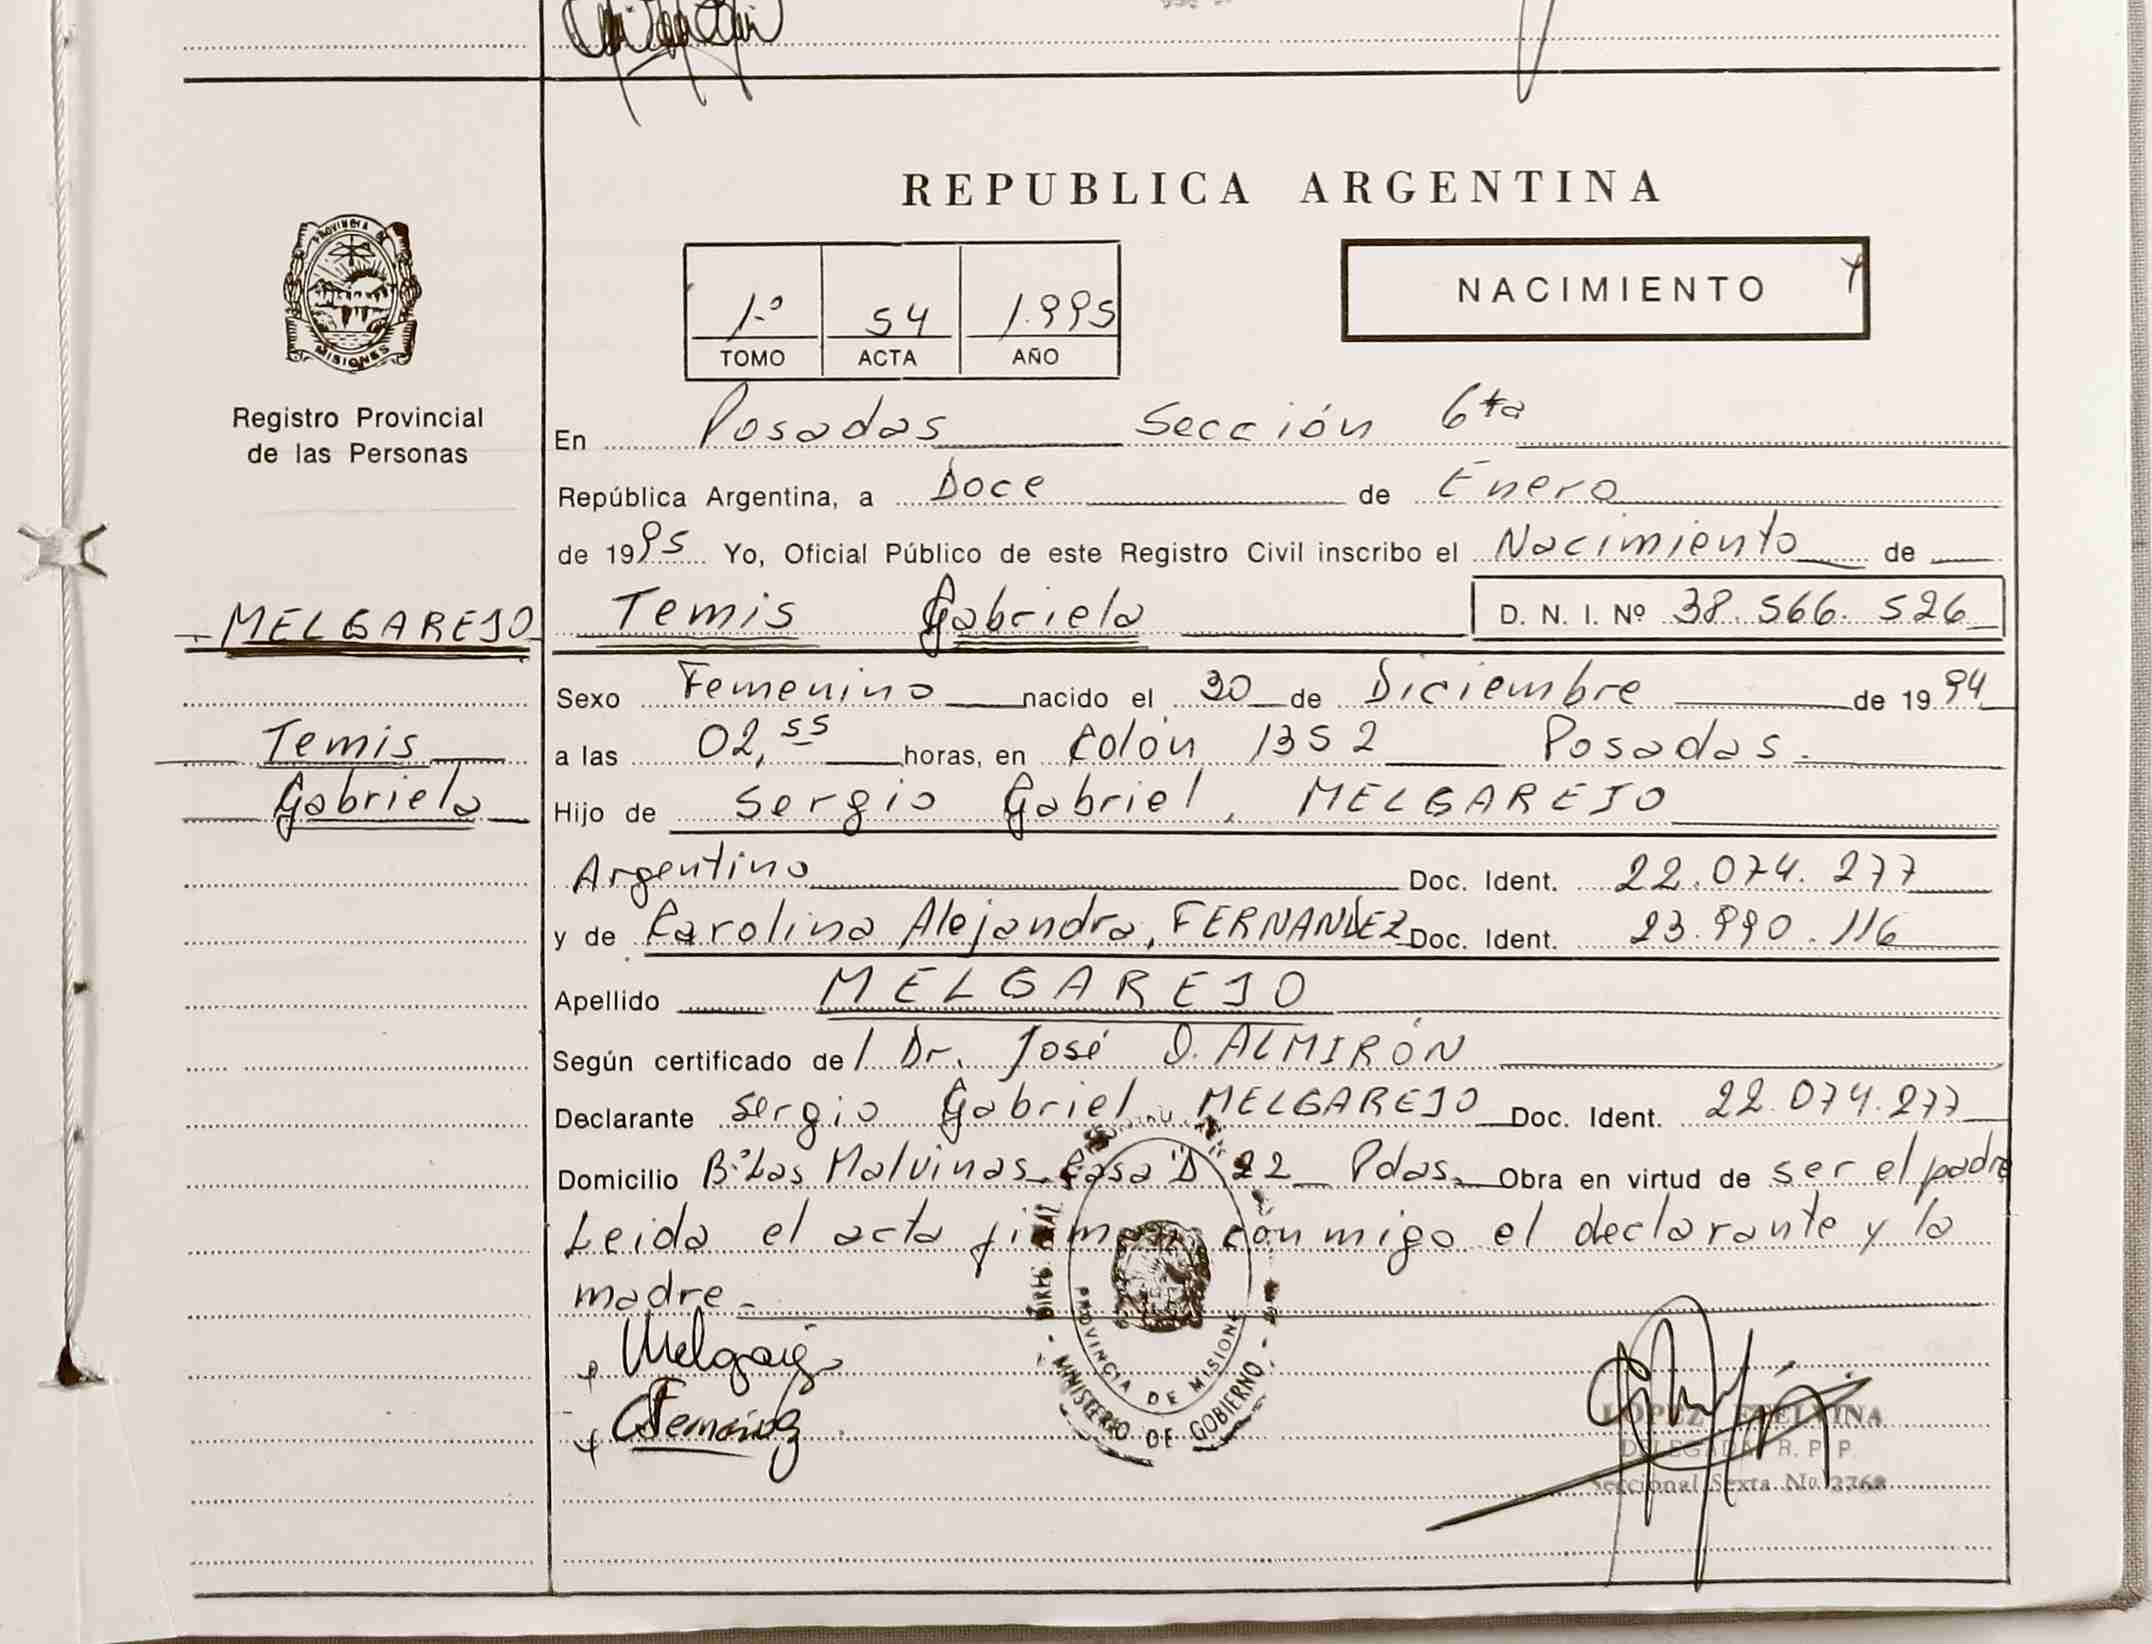 REPUBLICA ARGENTINA
PROVINCIA DE
MISIONES
Registro Provincial
de las Personas
1º 54 1.995
TOMO ACTA AÑO
NACIMIENTO
En Posadas Sección 6ta
República Argentina, a Doce de Enero
de 1995 Yo, Oficial Público de este Registro Civil inscribo el Nacimiento de
MELGAREJO Temis Gabriela D. N. I. Nº 38.566.526
Sexo Femenino nacido el 30 de Diciembre de 1994
Temis a las 02,55 horas, en Colón 1352 Posadas.
Gabriela Hijo de Sergio Gabriel, MELGAREJO
Argentino Doc. Ident. 22.074.277
y de Carolina Alejandra, FERNANDEZ Doc. Ident. 23.990.116
Apellido MELGAREJO
Según certificado de Dr. José D. ALMIRÓN
Declarante Sergio Gabriel MELGAREJO Doc. Ident. 22.074.277
Domicilio Bº Las Malvinas Casa "D" 22 Pdas. Obra en virtud de ser el padre
Leida el acta firman conmigo el declarante y la
madre.
PROVINCIA DE MISIONES
MINISTERIO DE GOBIERNO
LOPEZ ETELVINA
DELEGADA R. P. P.
Seccional Sexta No 3768